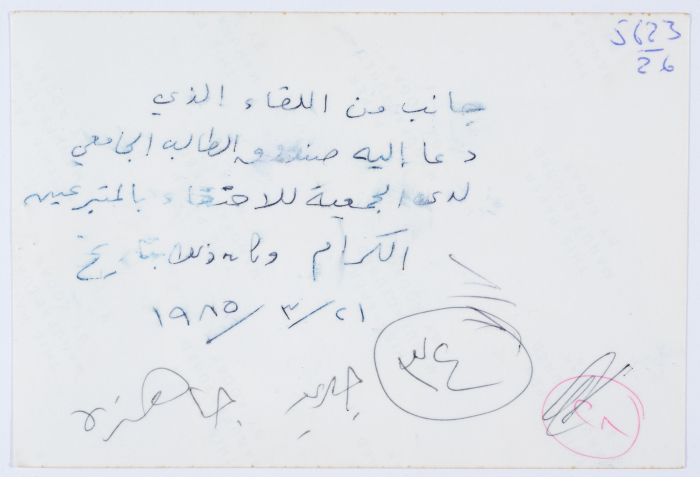 5623
26
جانب من اللقاء الذي
دعا إليه صندوق الطالب الجامعي
لدى الجمعية للاحتفاء بالمتبرعين
الكرام وكان ذلك بتاريخ
٢١/٣/١٩٨٥
٣٤
جاهزة